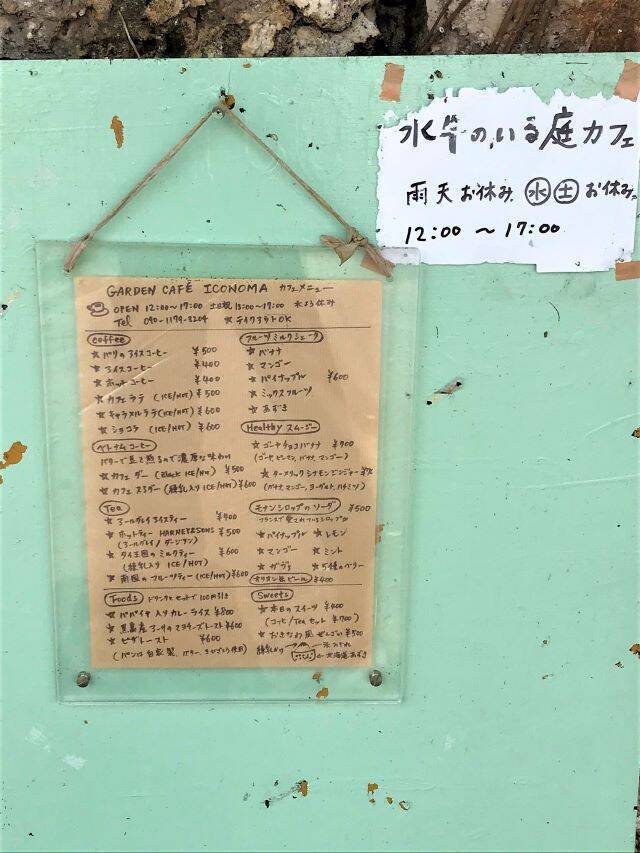 水牛のいる庭カフェ
雨天お休み 水 土 お休み
12:00 〜 17:00
GARDEN CAFÉ ICONOMA カフェメニュー
OPEN 12:00〜17:00 土日祝 13:00〜17:00
Tel 090-1179-3204 ☆テイクアウトOK
coffee
☆ アイスコーヒー ¥400
☆ ホットコーヒー ¥400
☆ カフェラテ (ICE/HOT) ¥500
☆ キャラメルラテ (ICE/HOT) ¥600
☆ ショコラ (ICE/HOT) ¥600
ベトナムコーヒー
バターで豆を煎るので濃厚な味わい
☆ カフェ ダー (Black ICE/HOT) ¥500
☆ カフェ スアダー (練乳入り ICE/HOT) ¥600
Tea
☆ アールグレイアイスティー ¥400
☆ ホットティー HARNEY&SONS ¥500
(アールグレイ / ダージリン)
☆ タイ王国の ミルクティー ¥600
(練乳入り ICE/HOT)
☆ 南国の フルーツティー (ICE/HOT) ¥600
Foods ドリンクとセットで100円引き
☆ パパイヤ入りカレーライス ¥800
☆ ピザトースト ¥600
フルーツミルクシェーク
☆ バナナ
☆ マンゴー
☆ パイナップル ¥600
☆ ミックスフルーツ
☆ あずき
Healthy スムージー
☆ ゴーヤチョコバナナ ¥700
☆ ターメリックシナモンジンジャー
(バナナ,マンゴー,ヨーグルト,ハチミツ)
モナンシロップのソーダ ¥500
フランスで愛されているシロップ
☆ パイナップル ☆ レモン
☆ マンゴー ☆ ミント
☆ グァヴァ ☆ 5種のベリー
オリオン生ビール ¥400
Sweets
☆ 本日のスイーツ ¥400
(コーヒー/Tea セット ¥700)
☆ おきなわ風 ぜんざい ¥500
練乳かけ
北海道あずき